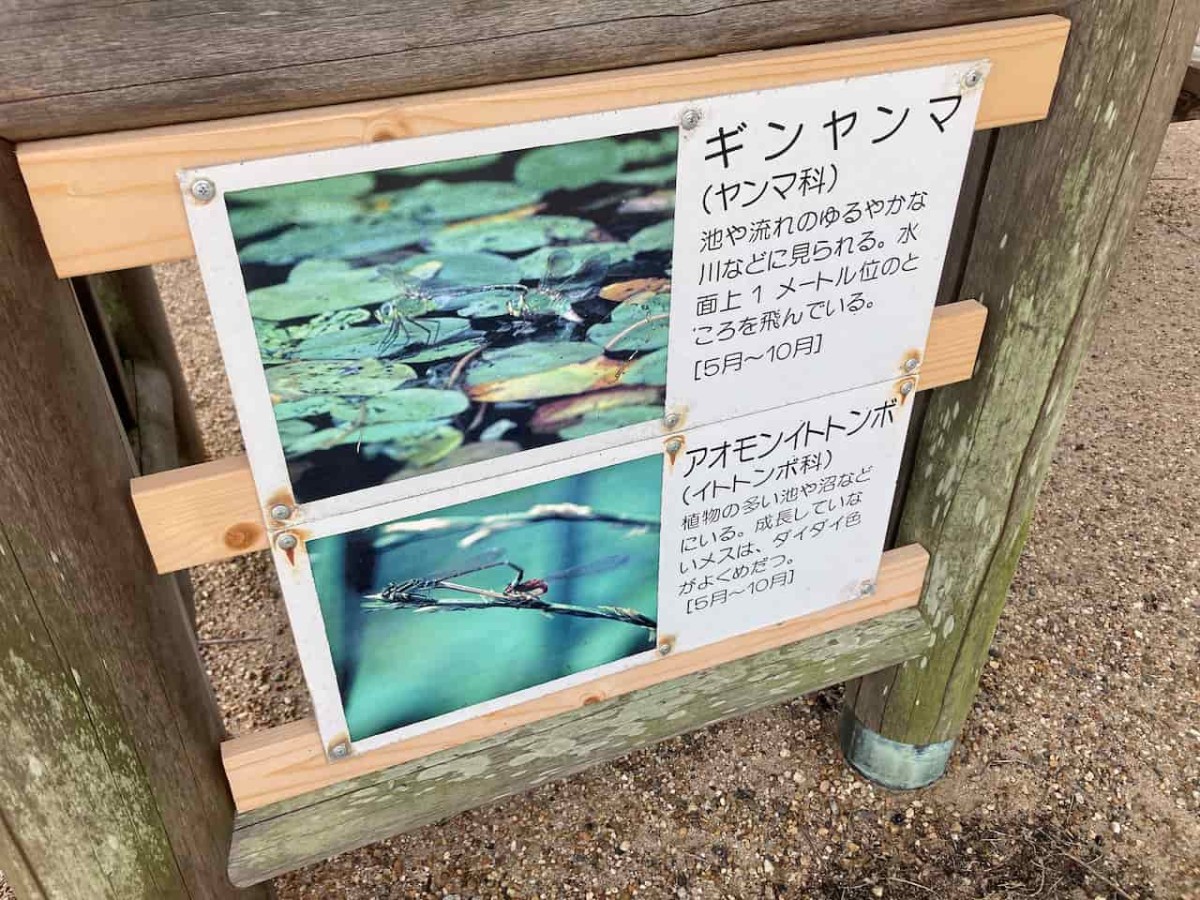 ギンヤンマ
(ヤンマ科)
池や流れのゆるやかな
川などに見られる。水
面上1メートル位のと
ころを飛んでいる。
[5月〜10月]
アオモンイトトンボ
(イトトンボ科)
植物の多い池や沼など
にいる。成長していな
いメスは、ダイダイ色
がよくめだつ。
[5月〜10月]